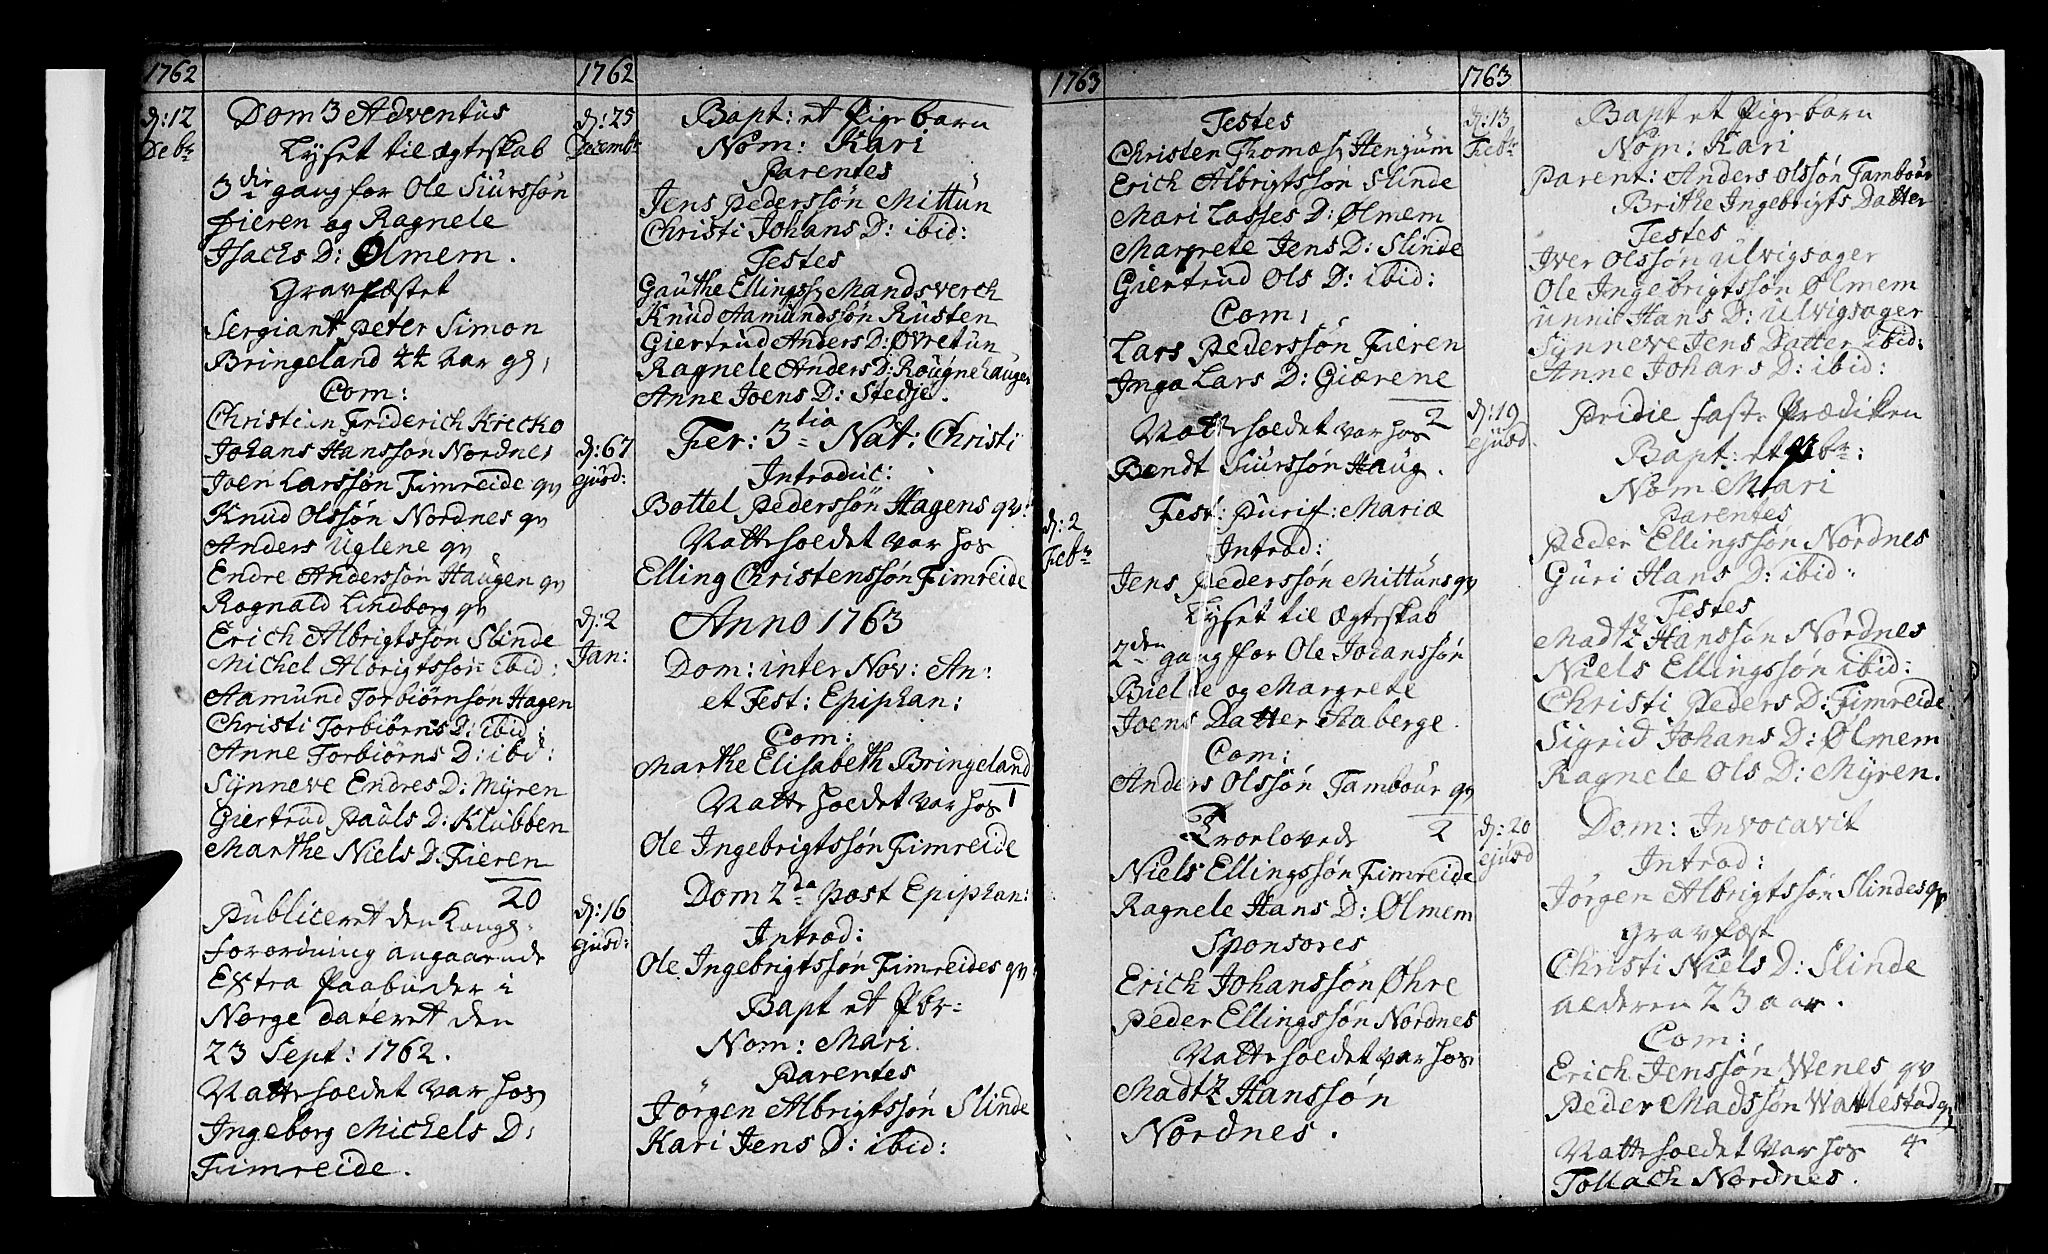 1762
d: 12 Debr
Dom 3 Adventus
Lyset til Ægteskab
3die gang for Ole Siurssøn
Fieren og Ragnele
Isachs D: Ølmem.
Gravfæstet
Sergiant Peter Simon
Bringeland 44 Aar gl,
Com:
Christian Friderich Kricko
Johans Hanssøn Nordnes
Joen Larssøn Fimreide qv
Knud Olssøn Nordnes qv
Anders Uglene qv
Endre Anderssøn Haugen qv
Rognald Lindborg qv
Erich Albrigtssøn Slinde
Michel Albrigtssøn ibid:
Aamund Torbiørnsøn Hagen
Christi Torbiørns D: ibid:
Anne Torbiørns D: ibid:
Synneve Endres D: Myren
Giertrud Pauls D: Klubben
Marthe Niels D. Fieren
20
Publiceret den Kongl:
forordning angaaende
Extra Paabuder i
Norge dateret den
23 Sept: 1762.
Natteholdet var hos
Ingeborg Michels D:
Fimreide.
1762
d: 25 Decembr
Bapt: et Pige barn
Nom: Kari
Parentes
Jens Pederssøn Mittun
Christi Johans D: ibid:
Testes
Gauthe Ellingss: Mandsverch
Knud Aamundssøn Rusten
Giertrud Anders D: Øvretun
Ragnele Anders D: Rougnehauger
Anne Joens D: Stedje.
d: 67 ejusd:
Fer: 3tia Nat: Christi
Introduc:
Bottel Pederssøn Hagens qv:
Natteholdet var hos
Elling Christenssøn Fimreide
Anno 1763
d: 2 Jan:
Dom: inter Nov: An:
et Fest: Epiphan:
Com:
Marthe Elisabeth Bringeland
1
Natteholdet var hos
Ole Ingebrigtssøn Fimreide
d: 16 ejusd:
Dom 2da post Epiphan:
Introd:
Ole Ingebrigtssøn Fimreides qv
Bapt et Pbr:
Nom: Mari.
Parentes
Jørgen Albrigtssøn Slinde
Kari Jens D: ibid:
1763
Testes
Christen Thomæs: Hengum
Erich Albrigtssøn Slinde
Mari Lasses D: Ølmem
Margrete Jens D: Slinde
Giertrud Ols D: ibid:
Com:
Lars Pederssøn Fieren
Inga Lars D: Giærene
2
Natteholdet var hos
Bendt Siurssøn Haug.
d: 2 Febr
Fest: Purif: Mariæ
Introd:
Jens Pederssøn Mittuns qv
Lyset til Ægteskab
2den gang for Ole Johanssøn
Bielde og Margrete
Joens Datter Aaberge.
Com:
Anders Olssøn Tambour qv
2
Trorlovede
Niels Ellingssøn Fimreide
Ragnele Hans D: Ølmem
Sponsores
Erich Johanssøn Øhre
Peder Ellingssøn Nordnes
Natteholdet var hos
Madtz Hanssøn
Nordnes.
1763
d: 13 Febr
Bapt et Pige barn
Nom: Kari
Parent: Anders Olssøn Tambour
Brithe Ingebrigts Datter
Testes
Iver Olssøn Ulvigsager
Ole Ingebrigtssøn Ølmem
Unni Hans D: Ulvigsager
Synneve Jens Datter ibid:
Anne Johans D: ibid:
d: 19 ejusd.
Pridie fast: Prædiken
Bapt: et pbr:
Nom Mari
Parentes
Peder Ellingssøn Nordnes
Guri Hans D: ibid:
Testes
Madtz Hanssøn Nordnes
Niels Ellingssøn ibid:
Christi Peders D: Fimreide
Sigrid Johans D: Ølmem
Ragnele Ols D: Myren.
d: 20 ejusd
Dom: Invocavit
Introd:
Jørgen Albrigtssøn Slindes qv
Gravfæst
Christi Niels D: Slinde
alderen 23 aar.
Com:
Erich Jenssøn Wenes qv
Peder Madssøn Wallestad qv
4
Natteholdet var hos
Tollach Nordnes.